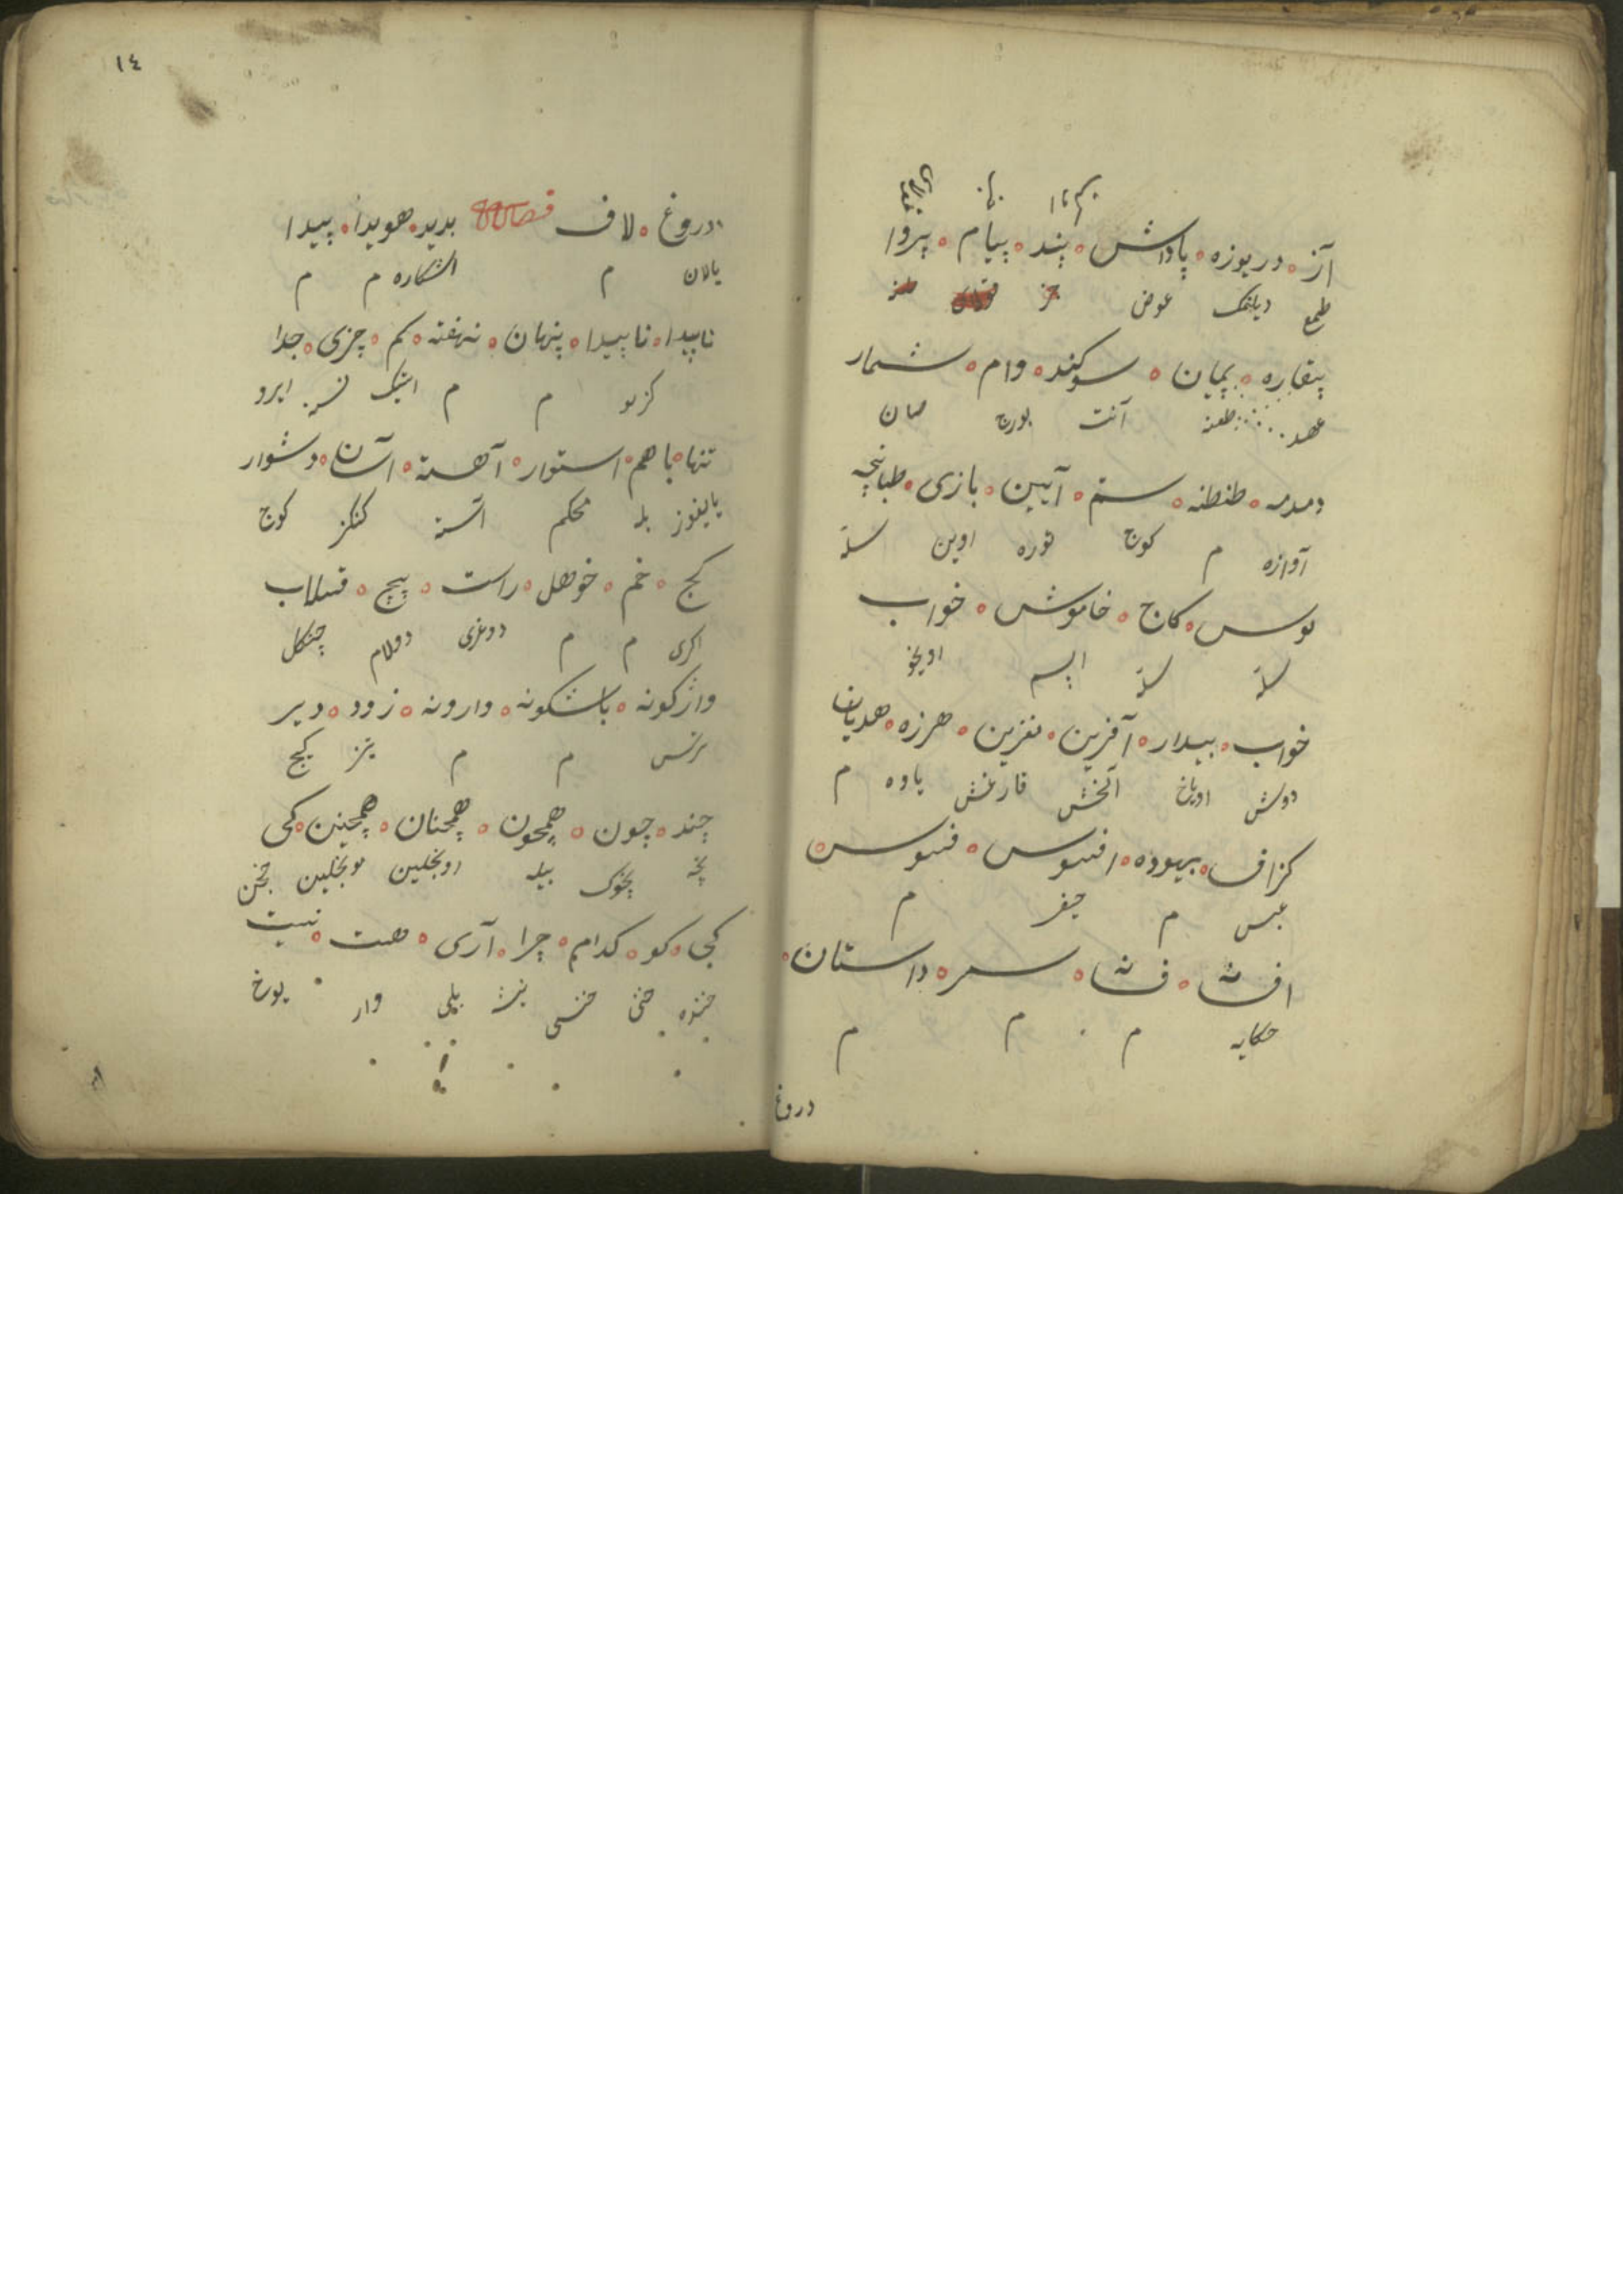 آز دریوزه پاداش پند پیام پروا
طمع دیلنمک عوض
بیغاره پیمان سوکند وام شمار
عهد طعنه آنت بورج صان
دمدمه طنطنه ستم آیین بازی طبانچه
آوازه م کوج توره اوین سلّه
بوس کاج خاموش خواب
سلّه سلّه ایسم اویخو
خواب بیدار آفرین نفرین هرزه هدیان
دوش اویاخ آلخش قارغش یاوه م
کزاف بیهوده افسوس فسوس
عبس م حیف م
افسانه فسانه سمر داستان
حکایه م م م
دروغ
١٤
دروغ لاف بدید هویدا پیدا
یالان م اشکاره م م
ناپیدا ناپیدا پنهان نهفته کم چزی جدا
کزلو م م اسکیک نسنه ایرو
تنها باهم استوار آهسته آسان دشوار
یالیغوز بله محکم اسّته کنکز کوج
کج خم خوهل راست پیچ قسلاب
اکری م م دوغری دولام چنکل
واژکونه باشکونه وارونه زود دیر
ترس م م تیز کیج
چند چون همچون همچنان همچنین کی
نچه نچوک بیله اونجلین بونجلین جخن
کجا کو کدام چرا آری هست نیست
بلی وار یوخ